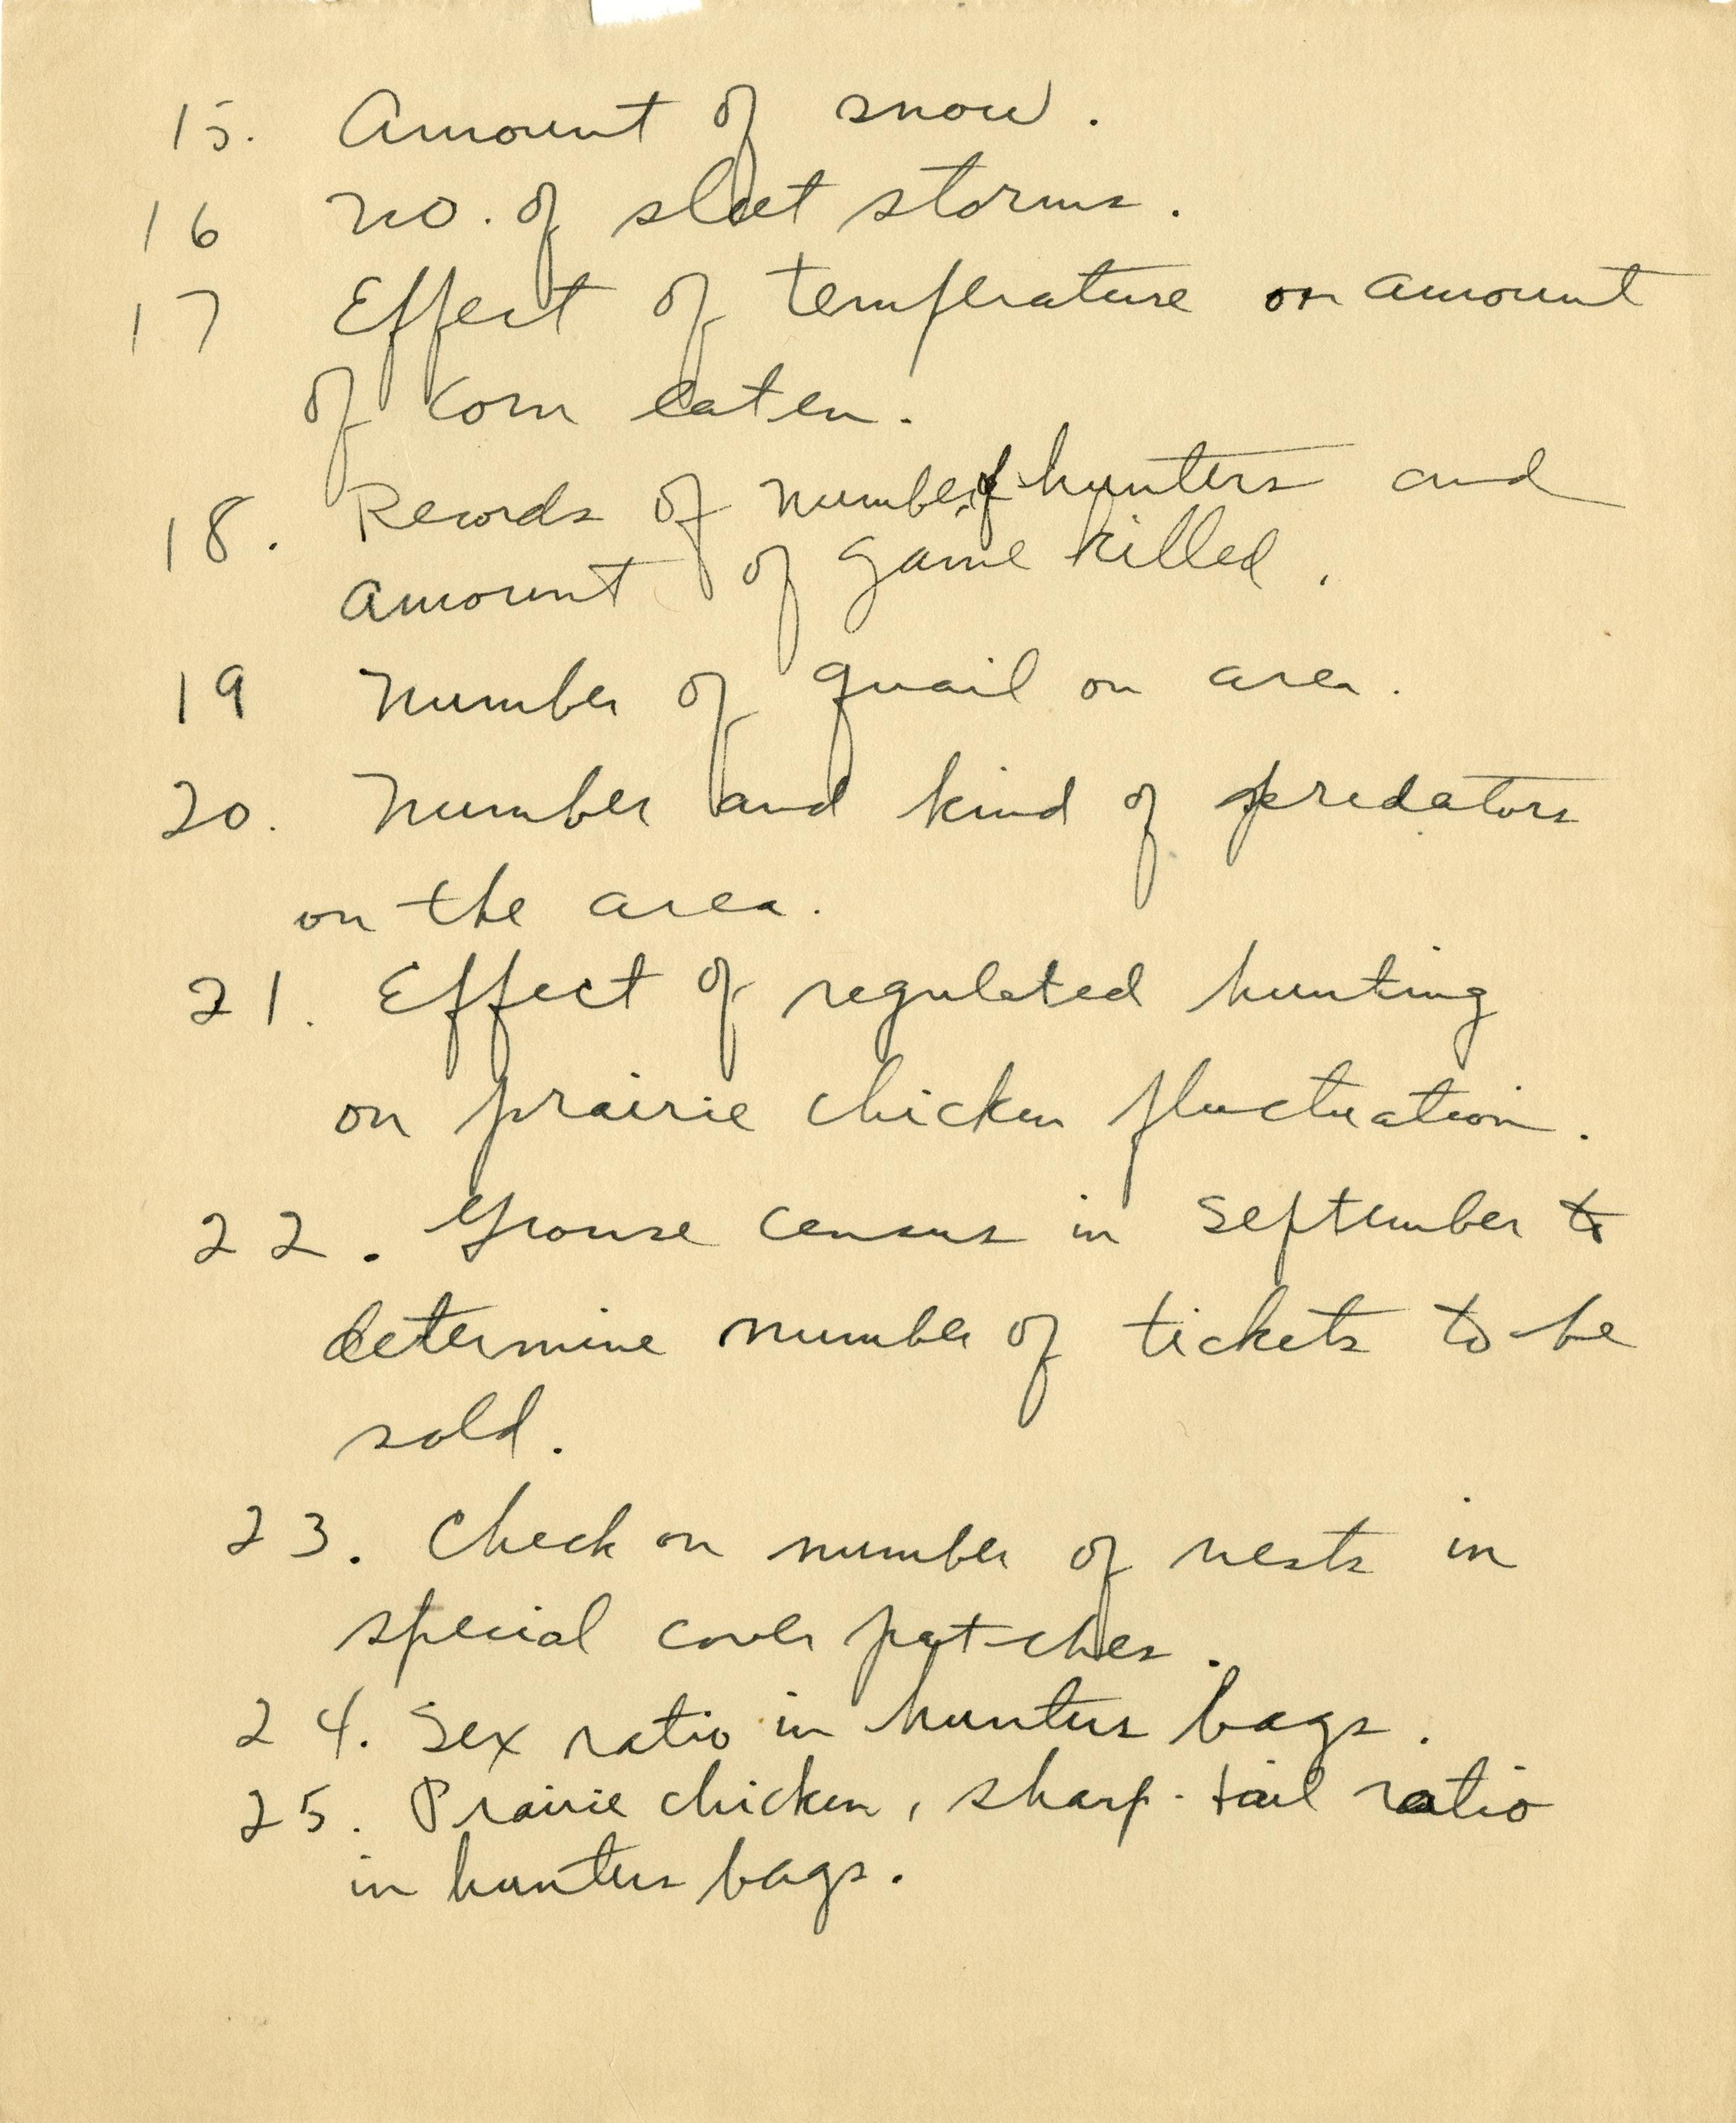 15. Amount of snow.
16 No. of sleet storms.
17 Effect of temperature on amount
of corn eaten.
18. Records of number of hunters and
amount of game killed.
19 Number of quail on area.
20. Number and kind of predators
on the area.
21. Effect of regulated hunting
on prairie chicken fluctuation.
22. Grouse census in September to
determine number of tickets to be
sold.
23. Check on number of nests in
special cover patches.
24. Sex ratio in hunters bags.
25. Prairie chicken, sharp-tail ratio
in hunters bags.